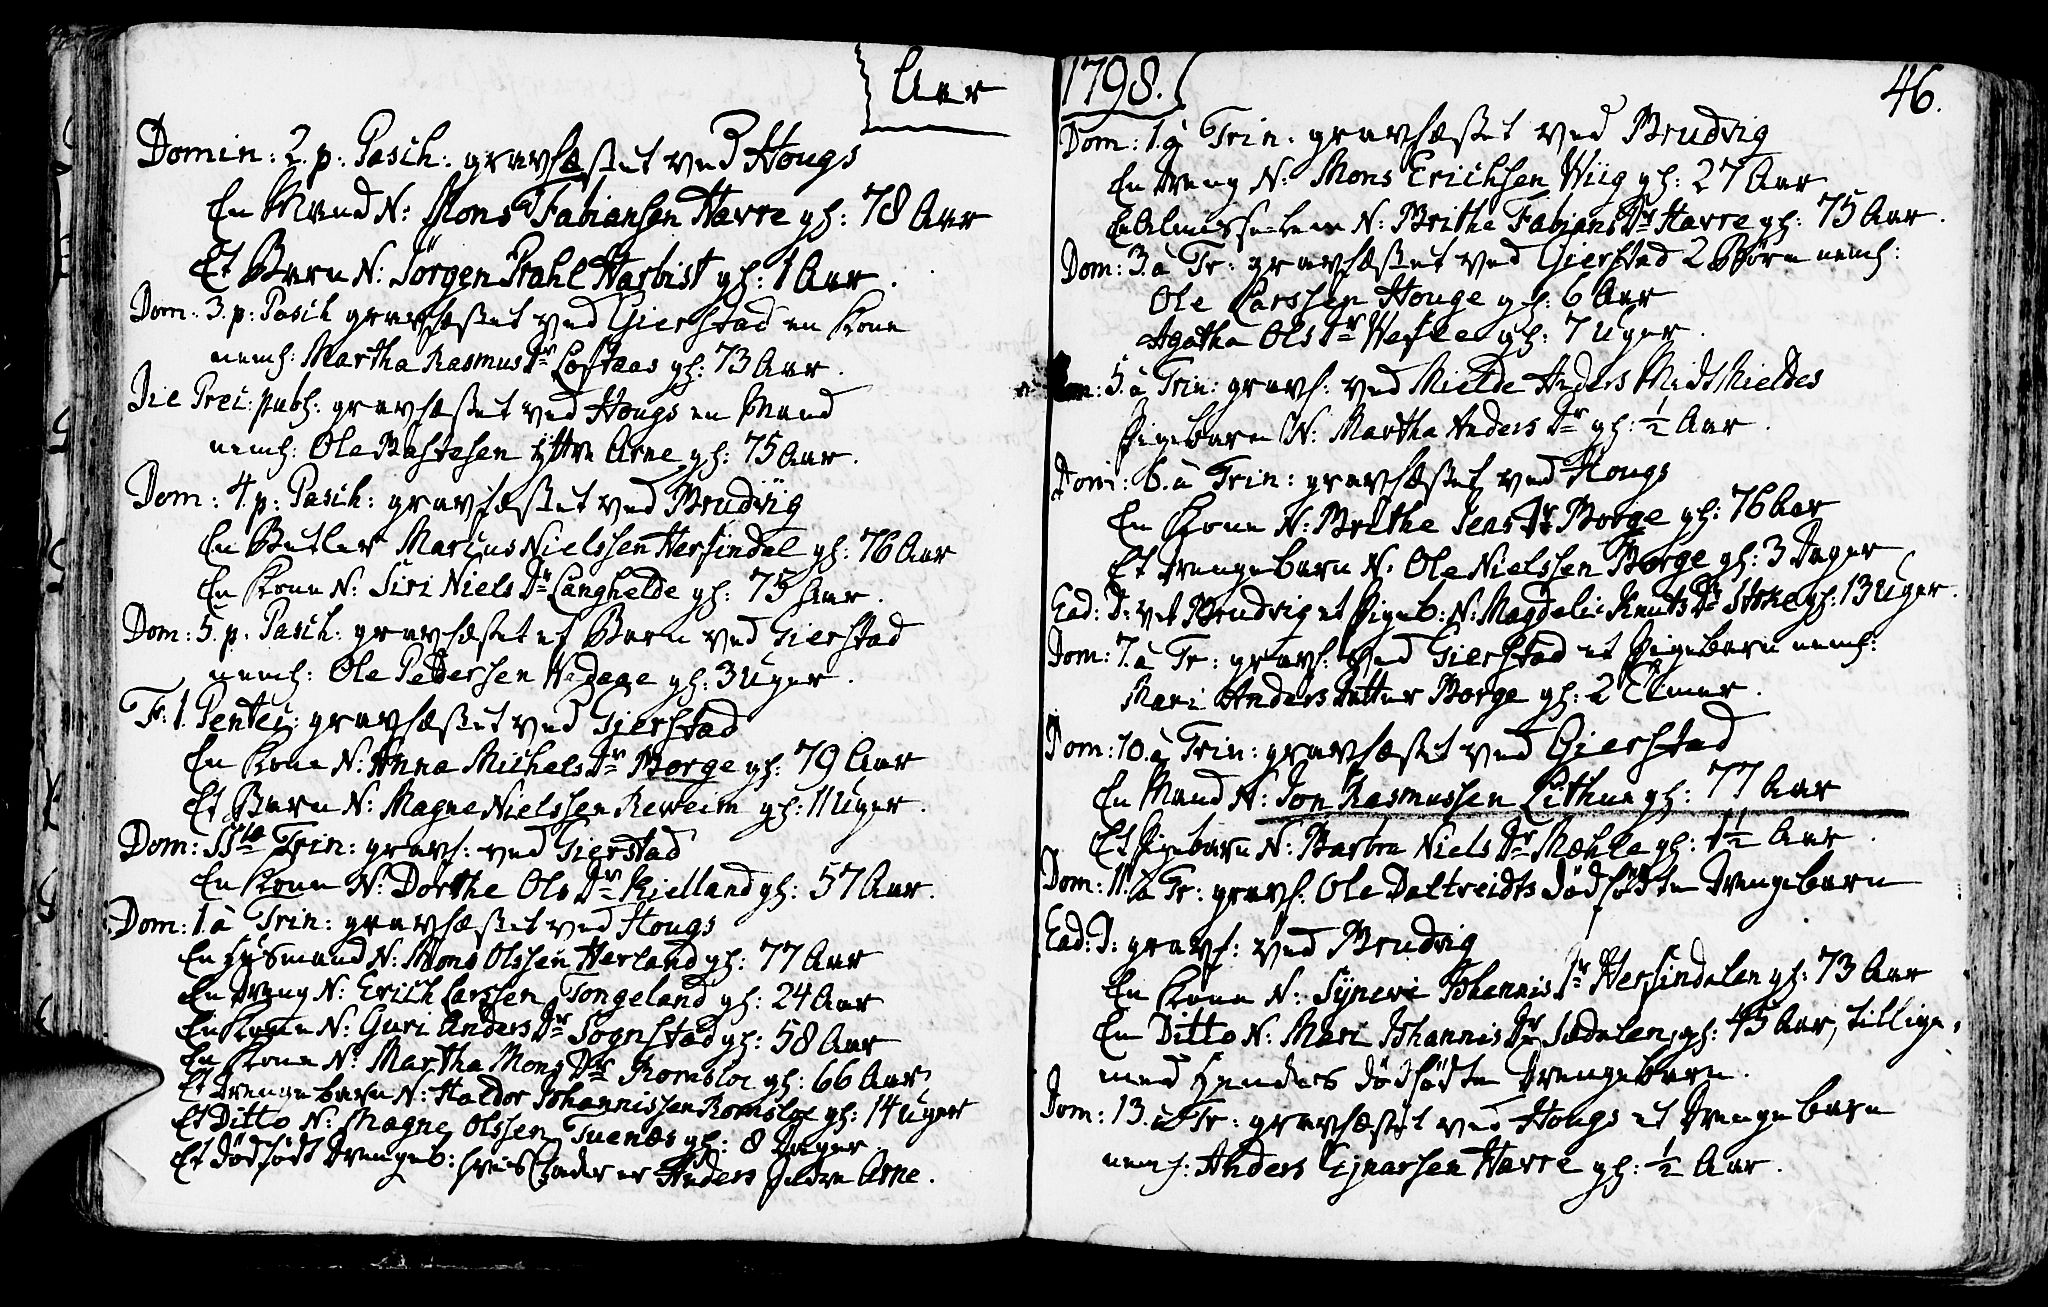 Aar
Domin: 2. p: Pasch: gravfæstet ved Hougs
En Mand N: Mons Fabiansen Havre gl: 78 Aar
Et Barn N: Jörgen Prahl Harbist gl: 1 Aar.
Dom: 3. p: Pasch gravfæstet ved Gierstad en Kone
neml: Martha Rasmus Dr Loftaas gl: 73 Aar.
Die Prei: publ: gravfæstet ved Hougs en Mand
neml: Ole Bastesen yttre Arne gl: 75 Aar.
Dom: 4. p: Pasch: gravfæstet ved Brudvig
En Betler Marcus Nielssen Hersindal gl: 76 Aar
En Kone N: Siri Niels Dr Langhelde gl: 75 Aar.
Dom: 5. p. Pasch: gravfæstet et Barn ved Gierstad
neml: Ole Pederssen gl: 3 Uger.
F: 1. Pentec: gravfæstet ved Gierstad
En Kone N: Anna Michels Dr Borge gl: 79 Aar
Et Barn N: Magne Nielssen Reweim gl: 11 Uger.
Dom: SSte Trin: gravf: ved Gierstad
En Kone N: Dorthe Ols Dr Kielland gl: 57 Aar.
Dom: 1. à Trin: gravfæstet ved Hougs
En Huusmand N: Mons Olssen Herland gl: 77 Aar
En Dreng N: Erich Larssen Tongeland gl: 24 Aar
En Kone N: Guri Anders Dr Sognstad gl: 58 Aar
En Kone N: Martha Mons Dr Romsloe gl: 66 Aar
Et Drengebarn N: Haldor Johannissen Romsloe gl: 14 Uger
Et Ditto N: Magne Olssen Tuenæs gl: 8 Dager.
Et dödfödt Drengeb: hvis Fader er Anders Indre Arne.
1798.
46.
Dom: 1. à Trin: gravfæstet ved Brudvig
En Dreng N: Mons Erichsen Wiig gl: 27 Aar
En Almisse-Lem N: Brithe Fabians Dr Havre gl: 75 Aar.
Dom: 3. à Tr: gravfæstet ved Gierstad 2 Börn neml:
Ole Larssen Houge gl: 6 Aar
Agatha Ols Dr Wefle gl: 7 Uger.
Dom: 5. à Trin: gravf: ved Mielde Anders Midt Mieldes
Pigebarn N: Martha Anders Dr gl: ½ Aar.
Dom: 6. à Trin: gravfæstet ved Hougs
En Kone N: Brithe Jens Dr Borge gl: 76 Aar
Et Drengebarn N: Ole Nielssen Borge gl: 3 Dager
Ead: D: ved Brudvig et Pigeb: N: Magdeli Knuts Dr Stoke gl: 13 Uger.
Dom: 7. à Tr: gravf: ved Gierstad et Pigebarn neml:
Mari Anders Datter Borge gl: 2 Timer.
Dom: 10. à Trin: gravfæstet ved Gierstad
En Mand N: Jon Rasmussen Lithun gl: 77 Aar
Et Pigebarn N: Barbro Niels Dr Mæhle gl: 1½ Aar.
Dom: 11. à Tr: gravf: Ole Daltreidts dödfödte Drengebarn
Ead: D: gravf: ved Brudvig
En Kone N: Synewe Johannis Dr Hersindalen gl: 73 Aar
En Ditto N: Mari Johannis Dr Sædalen, gl: 45 Aar, tillige-
med Hendes dödfödte Drengebarn.
Dom: 13. à Tr: gravfæstet ved Hougs et Drengebarn
neml: Anders Ejnarsen Havre gl: ½ Aar.